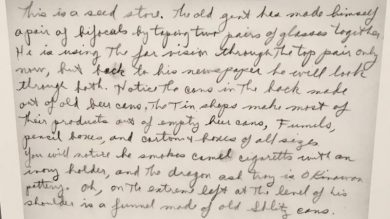 This is a seed store. The old gent has made himself
a pair of bifocals by taping two pairs of glasses together.
He is using the far vision through the top pair only
now, but back to his newspaper he will look
through both. Notice the cans in the back made
out of old beer cans. The Tin shops make most of
their products out of empty beer cans, Funnels,
pencil boxes, and cartons & boxes of all sizes
You will notice he smokes camel cigaretts with an
ivory holder, and the dragon ash tray is Okinawan
pottery. Oh, on the extreme left at the level of his
shoulder is a funnel made of old Shlitz cans.